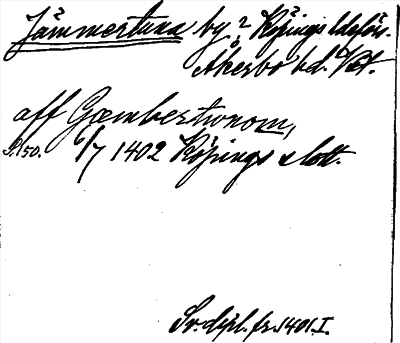 Jämmertuna by i Köpings ldsförs.
Åkerbo hd. Vstm.
aff Gæmbertunom,
S. 150. 6/7 1402 Köpings slott.
Sv. dipl. fr. 1401. I.